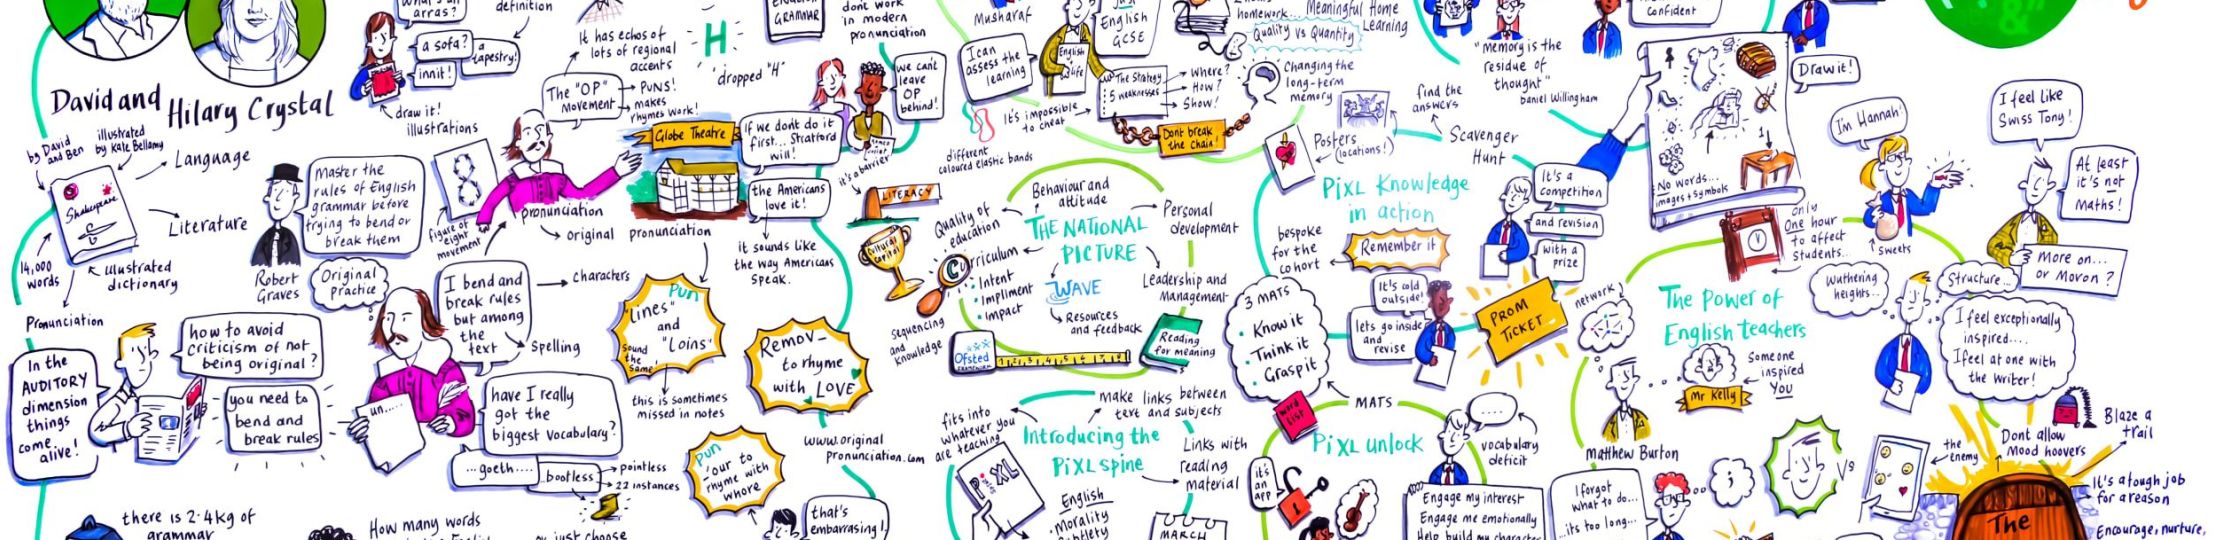 arras?
a sofa?
a
tapestry!
innit!
draw it!
illustrations
definition
It has echos of
lots of regional
accents
H
'dropped "H"
GRAMMAR
dont work
in modern
pronunciation
we cant
leave
OP
behind!
David and
Hilary Crystal
by David
and Ben
illustrated
by Kate Bellamy
Language
Shakespeare
Literature
14,000
words
illustrated
dictionary
Pronunciation
The "OP"
Movement
PUNS!
makes
rhymes work!
Globe Theatre
If we dont do it
first... Stratford
will!
the Americans
love it!
it sounds like
the way Americans
speak.
Master the
rules of English
grammar before
trying to bend or
break them
Robert
Graves
figure of
eight
movement
pronunciation
original pronunciation
Original
Practice
I bend and
break rules
but among
the
text
characters
Spelling
In the
AUDITORY
dimension
things
come
alive!
how to avoid
criticism of not
being original?
you need to
bend and
break rules
un.....
have I really
got the
biggest vocabulary?
...goeth....
bootless
pointless
22 instances
Pun
"Lines"
and
"Loins"
Sound
the
Same
this is sometimes
missed in notes
Remov_
to rhyme
with LOVE
Pun
our to
rhyme with
whore
www.original
pronunciation.com
that's
embarrasing!
there is 2.4kg of
grammar
How many words
or just choose
Musharaf
I can
assess the
learning
English
GCSE
English
4 life
The Strategy
5 weaknesses
Where?
How?
Show!
It's impossible
to cheat
different
coloured elastic bands
Dont break
the Chain!
homework...
Meaningful Home
Learning
Quality vs Quantity
Changing the
long-term
memory
it's a barrier
LITERACY
Cultural
capital
Behaviour and
attitude
THE NATIONAL
PICTURE
Personal
development
Quality of
education
Curriculum
Intent
Impliment
Impact
WAVE
Leadership and
Management
Resources
and feedback
sequencing
and
knowledge
Ofsted
FRAMEWORK
Reading
for meaning
fits into
whatever you
are teaching
make links between
text and subjects
Introducing the
PiXL spine
Links with
reading
material
PiXL
English
Morality
MARCH
"memory is the
residue of
thought"
Daniel Willingham
confident
find the
answers
Posters
(locations!)
Scavenger
Hunt
PiXL Knowledge
in action
bespoke
for the
cohort
Remember it
It's a
competition
and revision
with a
prize
3 MATS
Know it
Think it
Grasp it
It's cold
outside!
lets go inside
and
revise
PROM
TICKET
MATS
word
list
PiXL unlock
it's
an
app
vocabulary
deficit
Engage my interest
Engage me emotionally
Help build my character
No words...
images + symbols
Draw it!
I'm Hannah!
sweets
only
one hour
to affect
students..
I feel like
Swiss Tony!
At least
it's not
Maths!
More on...
or Moron?
network
The Power of
English teachers
Wuthering
heights...
Structure...
I feel exceptionally
inspired....
I feel at one with
the writer!
Mr Kelly
Someone
inspired
You
Matthew Burton
I forgot
what to do...
..its too long...
;
Vs
the
enemy
Dont allow
Mood hoovers
Blaze a
trail
It's a tough job
for a reason
Encourage, nurture,
The
&